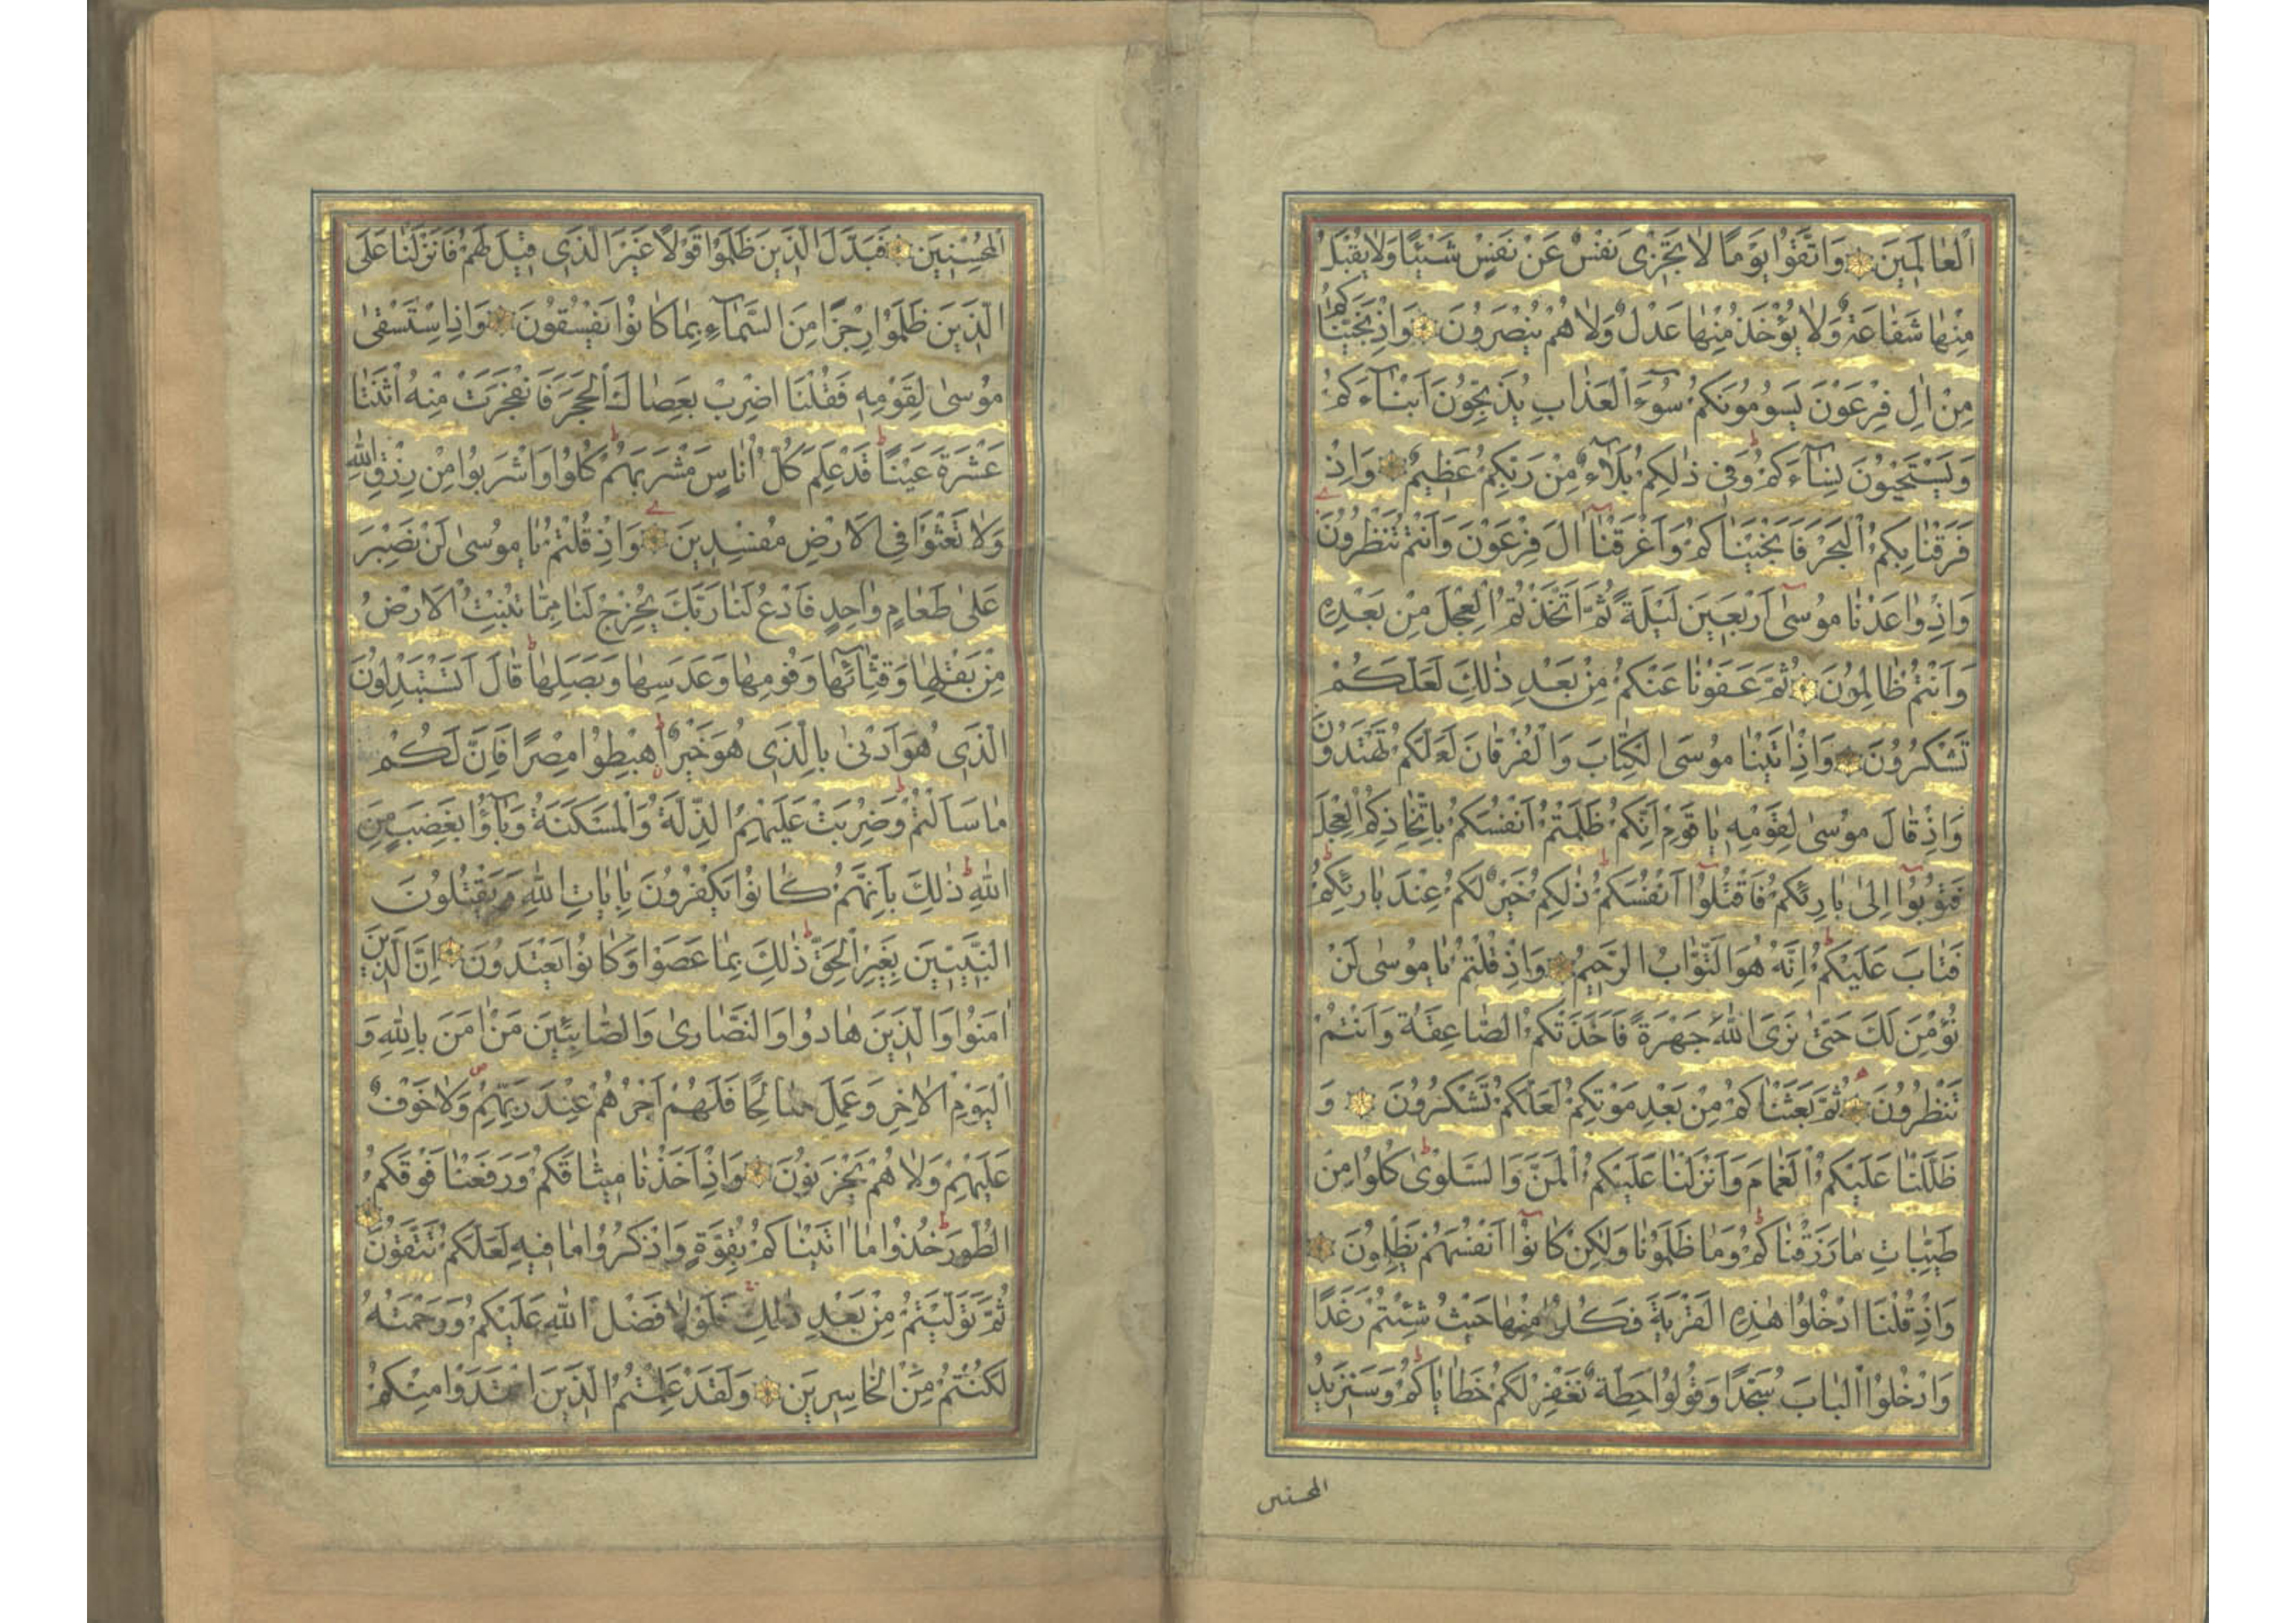 اَلْعَالَمِينَ وَاتَّقُوا يَوْمًا لَا تَجْزِي نَفْسٌ عَنْ نَفْسٍ شَيْئًا وَلَا يُقْبَلُ
مِنْهَا شَفَاعَةٌ وَلَا يُؤْخَذُ مِنْهَا عَدْلٌ وَلَا هُمْ يُنْصَرُونَ وَاِذْ نَجَّيْنَاكُمْ
مِنْ اٰلِ فِرْعَوْنَ يَسُومُونَكُمْ سُوٓءَ الْعَذَابِ يُذَبِّحُونَ اَبْنَآءَكُمْ
وَيَسْتَحْيُونَ نِسَآءَكُمْ وَفِي ذٰلِكُمْ بَلَآءٌ مِنْ رَبِّكُمْ عَظِيمٌ وَاِذْ
فَرَقْنَا بِكُمُ الْبَحْرَ فَاَنْجَيْنَاكُمْ وَاَغْرَقْنَآ اٰلَ فِرْعَوْنَ وَاَنْتُمْ تَنْظُرُونَ
وَاِذْ وٰاعَدْنَا مُوسٰٓى اَرْبَعِينَ لَيْلَةً ثُمَّ اتَّخَذْتُمُ الْعِجْلَ مِنْ بَعْدِهِ
وَاَنْتُمْ ظَالِمُونَ ثُمَّ عَفَوْنَا عَنْكُمْ مِنْ بَعْدِ ذٰلِكَ لَعَلَّكُمْ
تَشْكُرُونَ وَاِذْ اٰتَيْنَا مُوسَى الْكِتَابَ وَالْفُرْقَانَ لَعَلَّكُمْ تَهْتَدُونَ
وَاِذْ قَالَ مُوسٰى لِقَوْمِهِ يَا قَوْمِ اِنَّكُمْ ظَلَمْتُمْ اَنْفُسَكُمْ بِاتِّخَاذِكُمُ الْعِجْلَ
فَتُوبُوٓا اِلٰى بَارِئِكُمْ فَاقْتُلُوٓا اَنْفُسَكُمْ ذٰلِكُمْ خَيْرٌ لَكُمْ عِنْدَ بَارِئِكُمْ
فَتَابَ عَلَيْكُمْ اِنَّهُ هُوَ التَّوَّابُ الرَّحِيمُ وَاِذْ قُلْتُمْ يَا مُوسٰى لَنْ
نُؤْمِنَ لَكَ حَتّٰى نَرَى اللّٰهَ جَهْرَةً فَاَخَذَتْكُمُ الصَّاعِقَةُ وَاَنْتُمْ
تَنْظُرُونَ ثُمَّ بَعَثْنَاكُمْ مِنْ بَعْدِ مَوْتِكُمْ لَعَلَّكُمْ تَشْكُرُونَ وَ
ظَلَّلْنَا عَلَيْكُمُ الْغَمَامَ وَاَنْزَلْنَا عَلَيْكُمُ الْمَنَّ وَالسَّلْوٰى كُلُوا مِنْ
طَيِّبَاتِ مَا رَزَقْنَاكُمْ وَمَا ظَلَمُونَا وَلٰكِنْ كَانُوٓا اَنْفُسَهُمْ يَظْلِمُونَ
وَاِذْ قُلْنَا ادْخُلُوا هٰذِهِ الْقَرْيَةَ فَكُلُوا مِنْهَا حَيْثُ شِئْتُمْ رَغَدًا
وَادْخُلُوا الْبَابَ سُجَّدًا وَقُولُوا حِطَّةٌ نَغْفِرْ لَكُمْ خَطَايَاكُمْ وَسَنَزِيدُ
المحسنين
الْمُحْسِنِينَ فَبَدَّلَ الَّذِينَ ظَلَمُوا قَوْلًا غَيْرَ الَّذِي قِيلَ لَهُمْ فَاَنْزَلْنَا عَلَى
الَّذِينَ ظَلَمُوا رِجْزًا مِنَ السَّمَآءِ بِمَا كَانُوا يَفْسُقُونَ وَاِذِ اسْتَسْقٰى
مُوسٰى لِقَوْمِهِ فَقُلْنَا اضْرِبْ بِعَصَاكَ الْحَجَرَ فَانْفَجَرَتْ مِنْهُ اثْنَتَا
عَشْرَةَ عَيْنًا قَدْ عَلِمَ كُلُّ اُنَاسٍ مَشْرَبَهُمْ كُلُوا وَاشْرَبُوا مِنْ رِزْقِ اللّٰهِ
وَلَا تَعْثَوْا فِي الْاَرْضِ مُفْسِدِينَ وَاِذْ قُلْتُمْ يَا مُوسٰى لَنْ نَصْبِرَ
عَلٰى طَعَامٍ وَاحِدٍ فَادْعُ لَنَا رَبَّكَ يُخْرِجْ لَنَا مِمَّا تُنْبِتُ الْاَرْضُ
مِنْ بَقْلِهَا وَقِثَّآئِهَا وَفُومِهَا وَعَدَسِهَا وَبَصَلِهَا قَالَ اَتَسْتَبْدِلُونَ
الَّذِي هُوَ اَدْنٰى بِالَّذِي هُوَ خَيْرٌ اِهْبِطُوا مِصْرًا فَاِنَّ لَكُمْ
مَا سَاَلْتُمْ وَضُرِبَتْ عَلَيْهِمُ الذِّلَّةُ وَالْمَسْكَنَةُ وَبَآؤُا بِغَضَبٍ مِنَ
اللّٰهِ ذٰلِكَ بِاَنَّهُمْ كَانُوا يَكْفُرُونَ بِاٰيَاتِ اللّٰهِ وَيَقْتُلُونَ
النَّبِيِّينَ بِغَيْرِ الْحَقِّ ذٰلِكَ بِمَا عَصَوْا وَكَانُوا يَعْتَدُونَ اِنَّ الَّذِينَ
اٰمَنُوا وَالَّذِينَ هَادُوا وَالنَّصَارٰى وَالصَّابِئِينَ مَنْ اٰمَنَ بِاللّٰهِ وَ
الْيَوْمِ الْاٰخِرِ وَعَمِلَ صَالِحًا فَلَهُمْ اَجْرُهُمْ عِنْدَ رَبِّهِمْ وَلَا خَوْفٌ
عَلَيْهِمْ وَلَا هُمْ يَحْزَنُونَ وَاِذْ اَخَذْنَا مِيثَاقَكُمْ وَرَفَعْنَا فَوْقَكُمُ
الطُّورَ خُذُوا مَا اٰتَيْنَاكُمْ بِقُوَّةٍ وَاذْكُرُوا مَا فِيهِ لَعَلَّكُمْ تَتَّقُونَ
ثُمَّ تَوَلَّيْتُمْ مِنْ بَعْدِ ذٰلِكَ فَلَوْلَا فَضْلُ اللّٰهِ عَلَيْكُمْ وَرَحْمَتُهُ
لَكُنْتُمْ مِنَ الْخَاسِرِينَ وَلَقَدْ عَلِمْتُمُ الَّذِينَ اعْتَدَوْا مِنْكُمْ